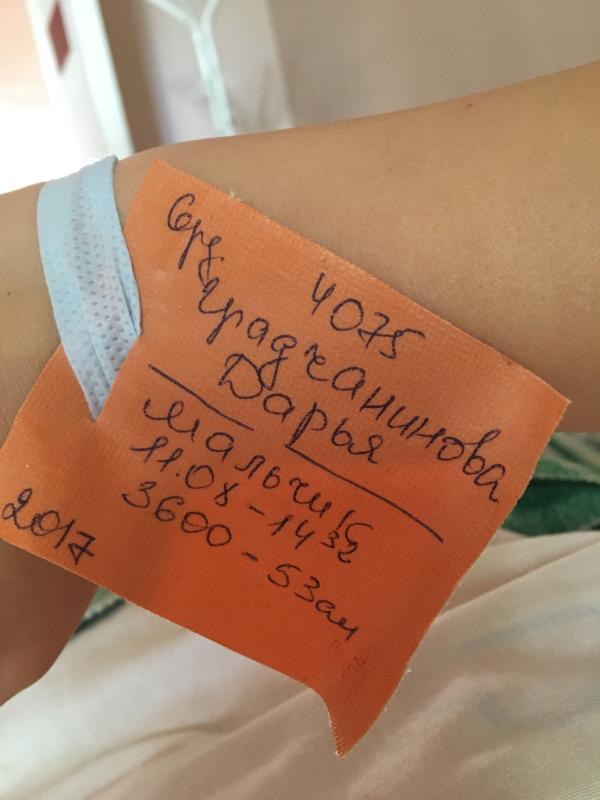 4075
Гражданинова
Дарья
мальчик
11.08-14 32
3600-53см
2017